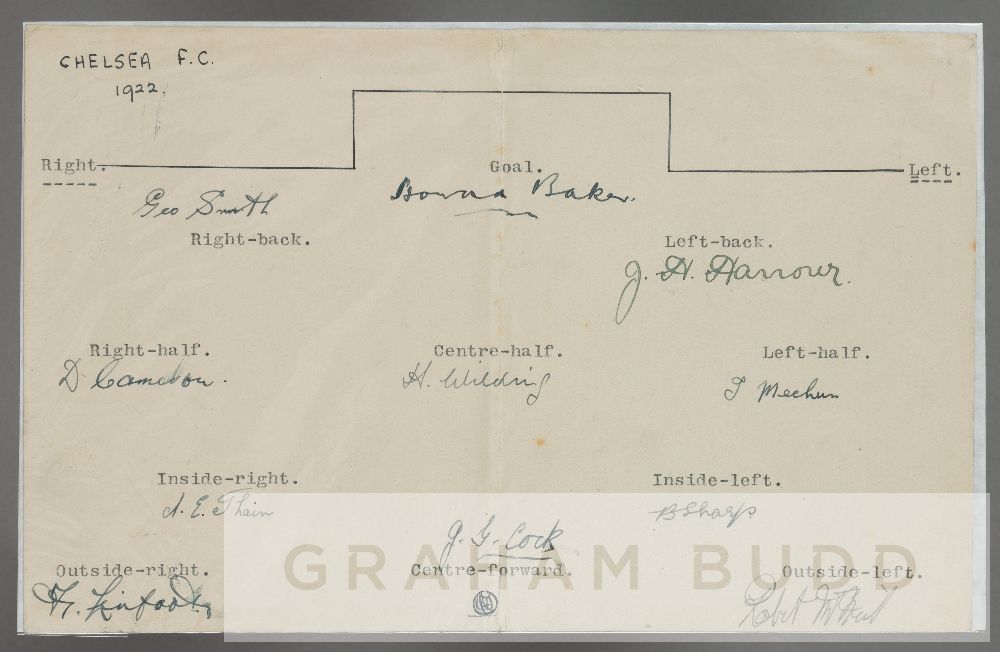 CHELSEA F.C.
1922.
Right. Goal. Left.
Geo Smith Baker.
Right-back. Left-back.
J. H. Harrower.
Right-half. Centre-half. Left-half.
D Cameron. H. Wilding J Meehan
Inside-right. Inside-left.
A. E. Thain B Sharp
J. G. Cock
GRAHAM BUDD
Outside-right. Centre-forward. Outside-left.
F. Linfoot